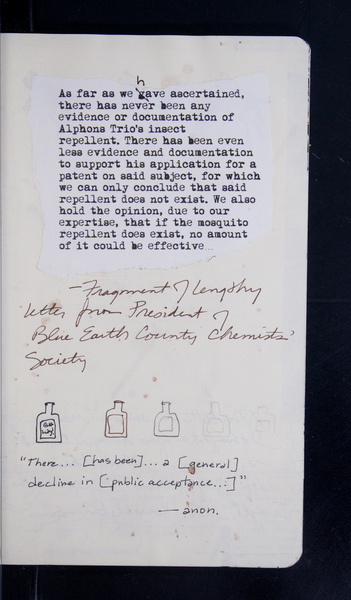 h
As far as we gave ascertained,
there has never been any
evidence or documentation of
Alphons Trio's insect
repellent. There has been even
less evidence and documentation
to support his application for a
patent on said subject, for which
we can only conclude that said
repellent does not exist. We also
hold the opinion, due to our
expertise, that if the mosquito
repellent does exist, no amount
of it could be effective...
—Fragment of Lengthy
letter from President of
Blue Earth County Chemists'
Society
"There... [has been]... a [general]
decline in [public acceptance...]"
— anon.